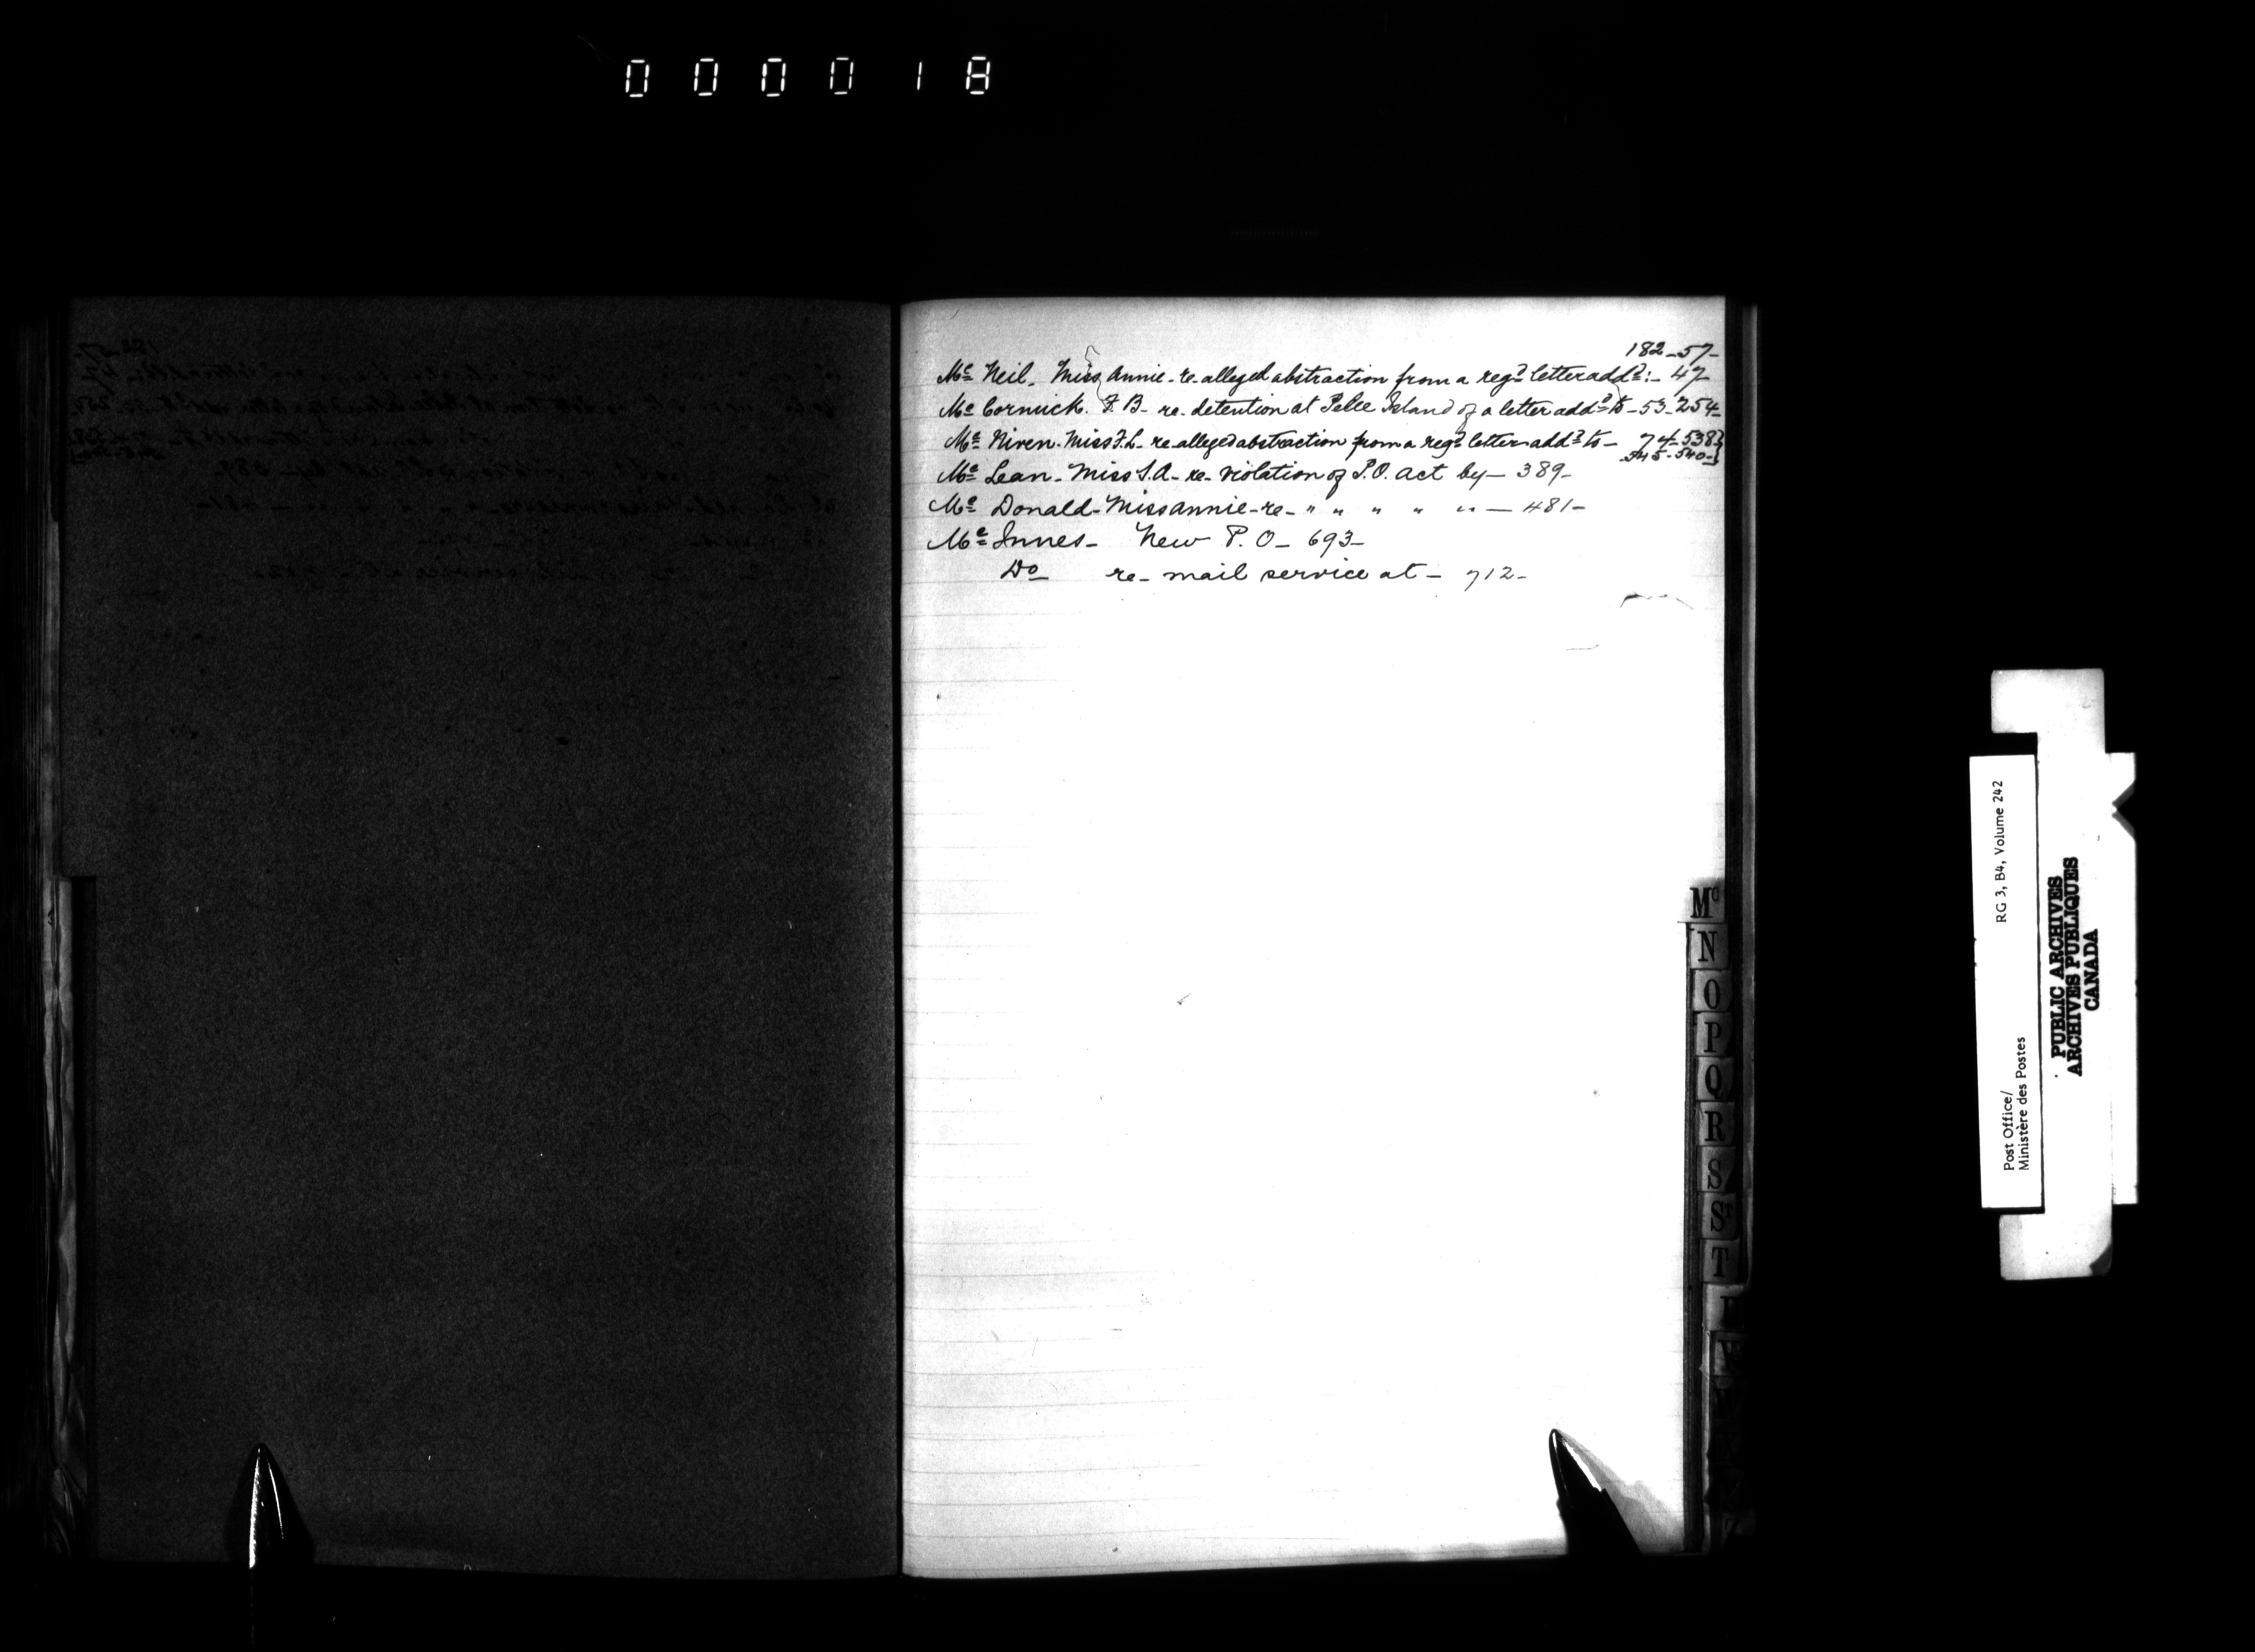 000018
182-57-
Mc Neil. Miss Annie - re alleged abstraction from a regd letter addd:- 47
Mc Cormick. F. B- re. detention at Pelee Island of a letter addd to - 53-254-
Mc Niven. Miss F.L- re alleged abstraction from a regd letter addd to - 74-538}
545-540-}
Mc Lean- Miss S.A- re- violation of P.O. act by - 389-
Mc Donald- Miss Annie- re- " " " " " - 481-
Mc Innes- New P. O- 693-
Do re- mail service at - 712-
Mc
N
O
P
Q
R
S
ST
T
Post Office/
Ministère des Postes
RG 3, B4, Volume 242
PUBLIC ARCHIVES
ARCHIVES PUBLIQUES
CANADA